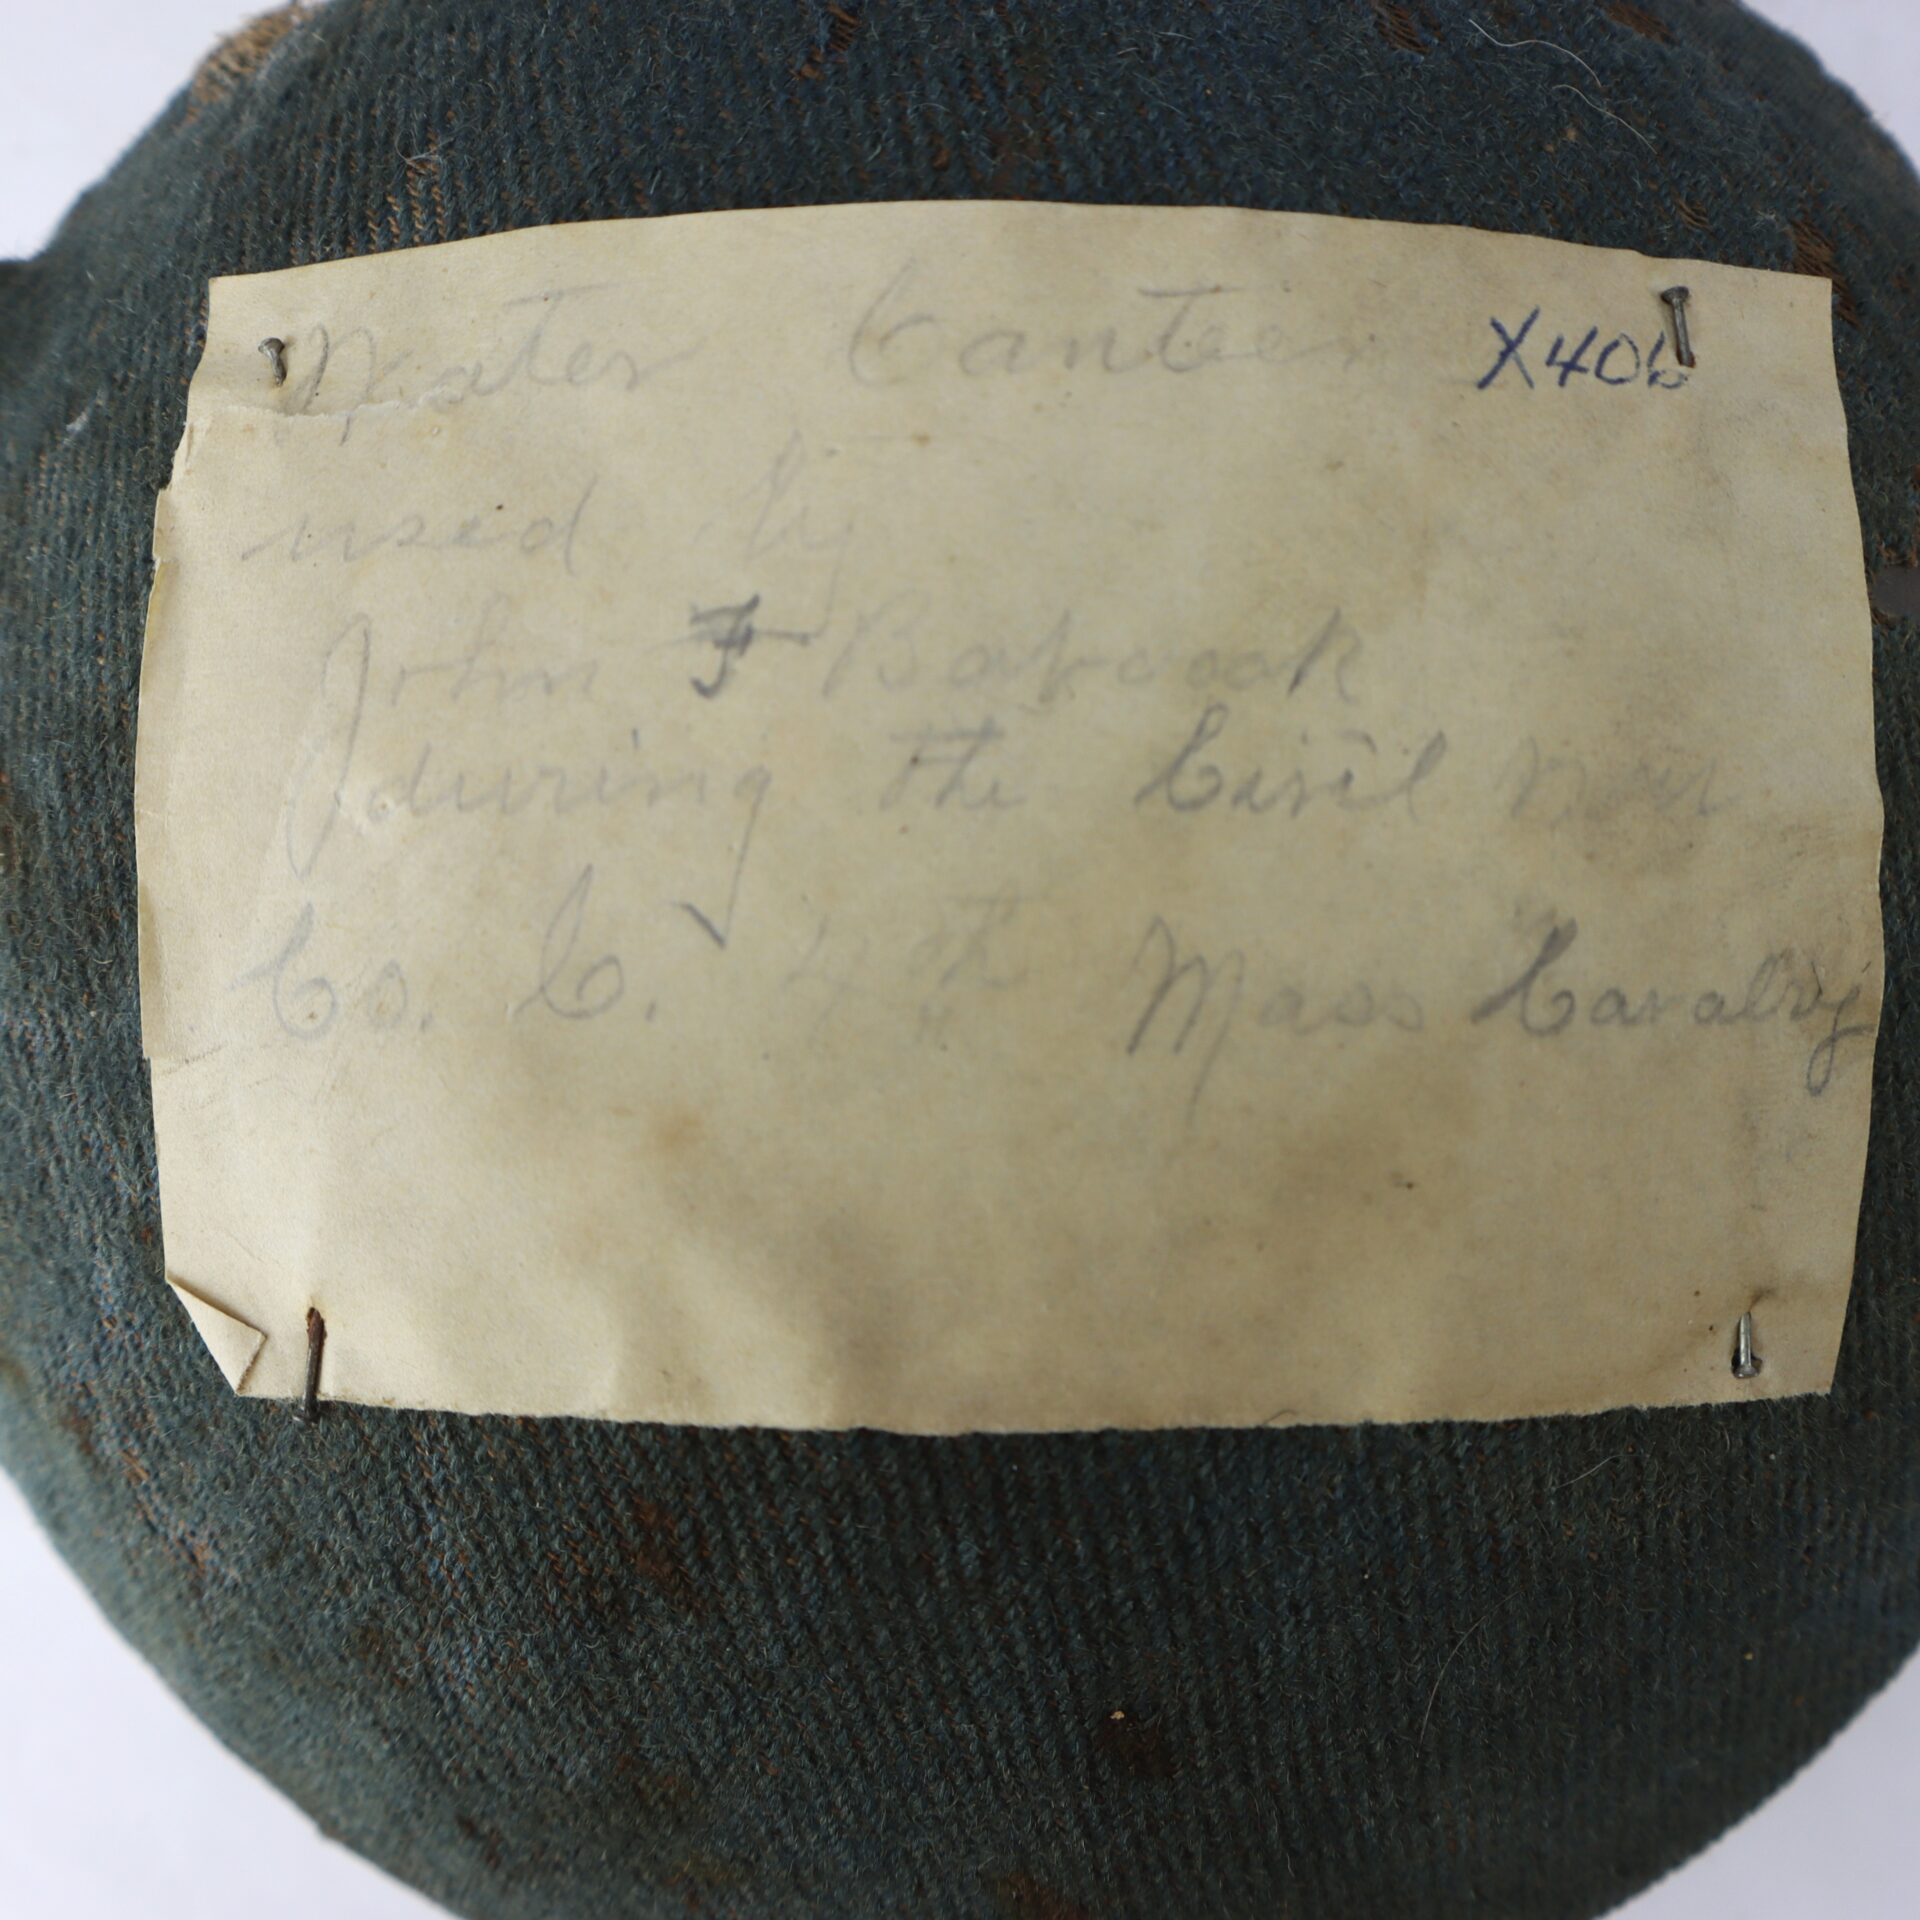 Water Canteen X406
used by
John F Babcock
during the Civil War
Co. C. 4th Mass Cavalry